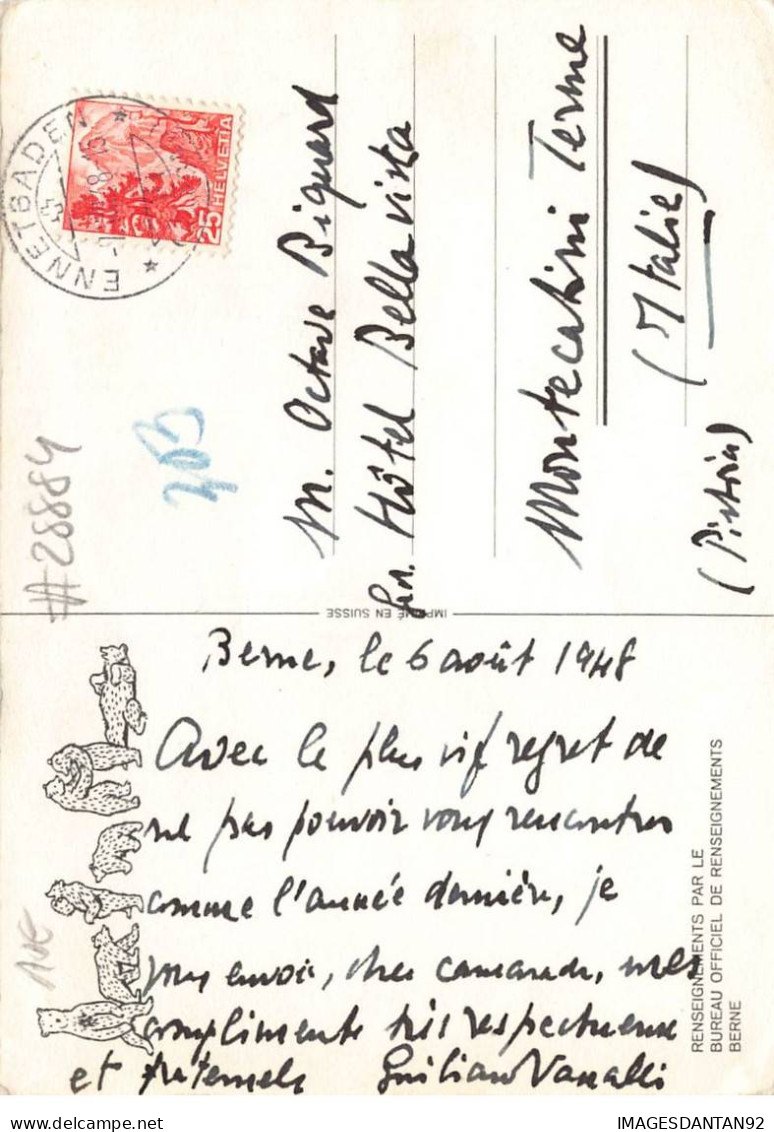 ENNETBADEN
HELVETIA
25
#28884
M. Octave Biquard
Hôtel Bellavista
Montecatini Terme
(Italie)
(Pistoia)
IMPRIMÉ EN SUISSE
Berne, le 6 août 1948
Avec le plus vif regret de
ne pas pouvoir vous rencontrer
comme l'année dernière, je
vous envoie, cher camarade, mes
compliments très respectueux
et fraternels
RENSEIGNEMENTS PAR LE
BUREAU OFFICIEL DE RENSEIGNEMENTS
BERNE
IMAGESDANTAN92